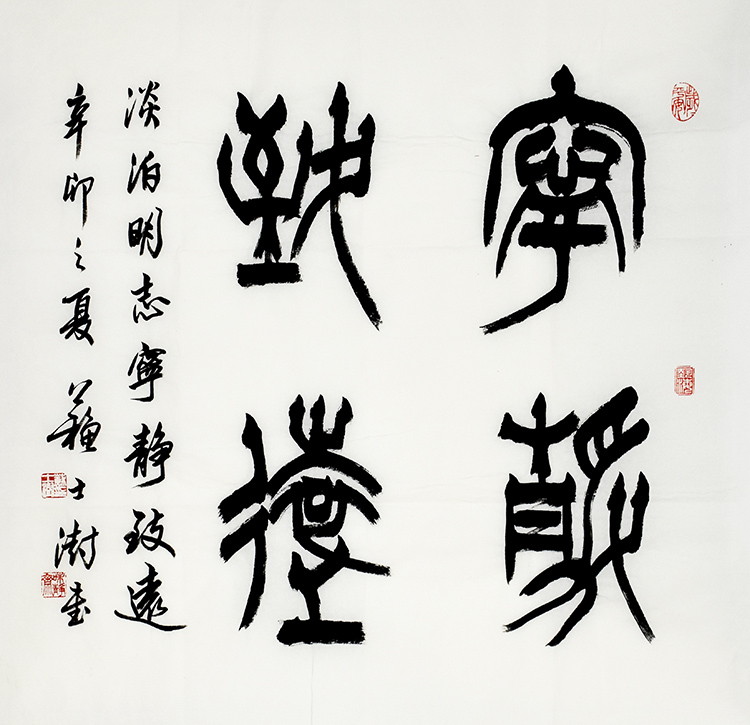 寧靜
致遠
淡泊明志寧靜致遠
辛卯之夏蘇士澍書